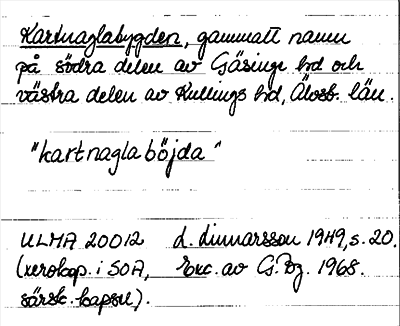 Kartnaglabygden, gammalt namn
på södra delen av Gäsings hd och
västra delen av Kullings hd, Älvsb. län.
"kartnagla böjda"
ULMA 20012 L. Linnarsson 1949, s. 20.
(xerokop. i SOA, Exc. av G. Bg. 1968.
särsk. kapsel).